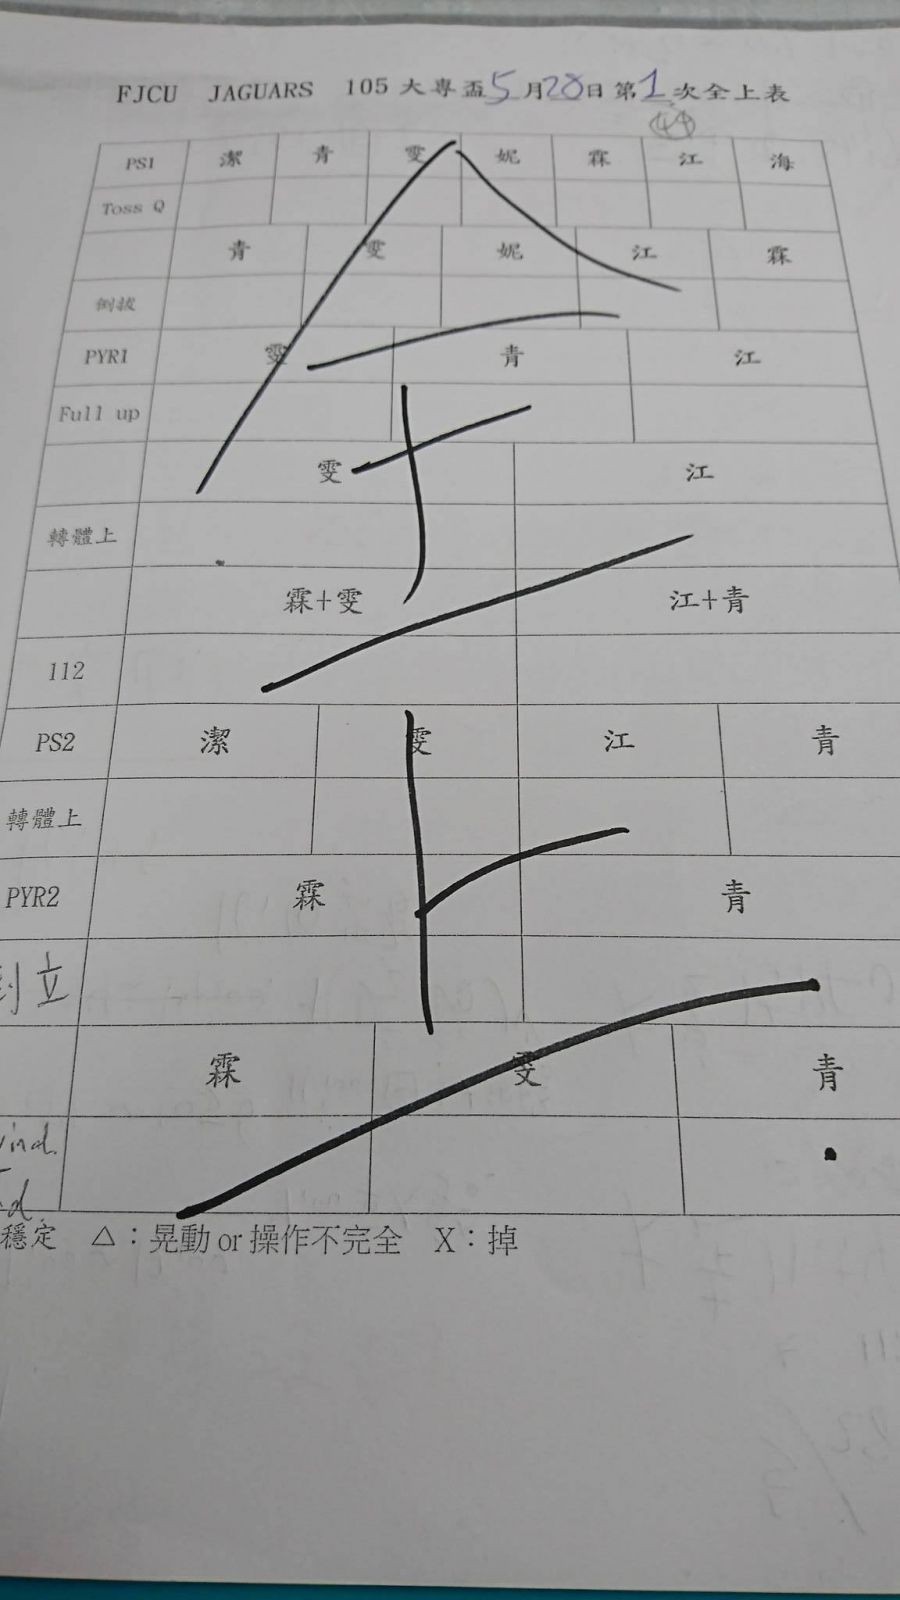 FJCU JAGUARS 105大專盃5月28日第1次全上表
PS1 潔 青 雯 妮 霖 江 海
Toss Q
青 雯 妮 江 霖
倒拔
PYR1 雯 青 江
Full up
雯 江
轉體上
霖+雯 江+青
112
PS2 潔 雯 江 青
轉體上
PYR2 霖 青
倒立
霖 雯 青
穩定 △：晃動 or 操作不完全 X：掉
全上